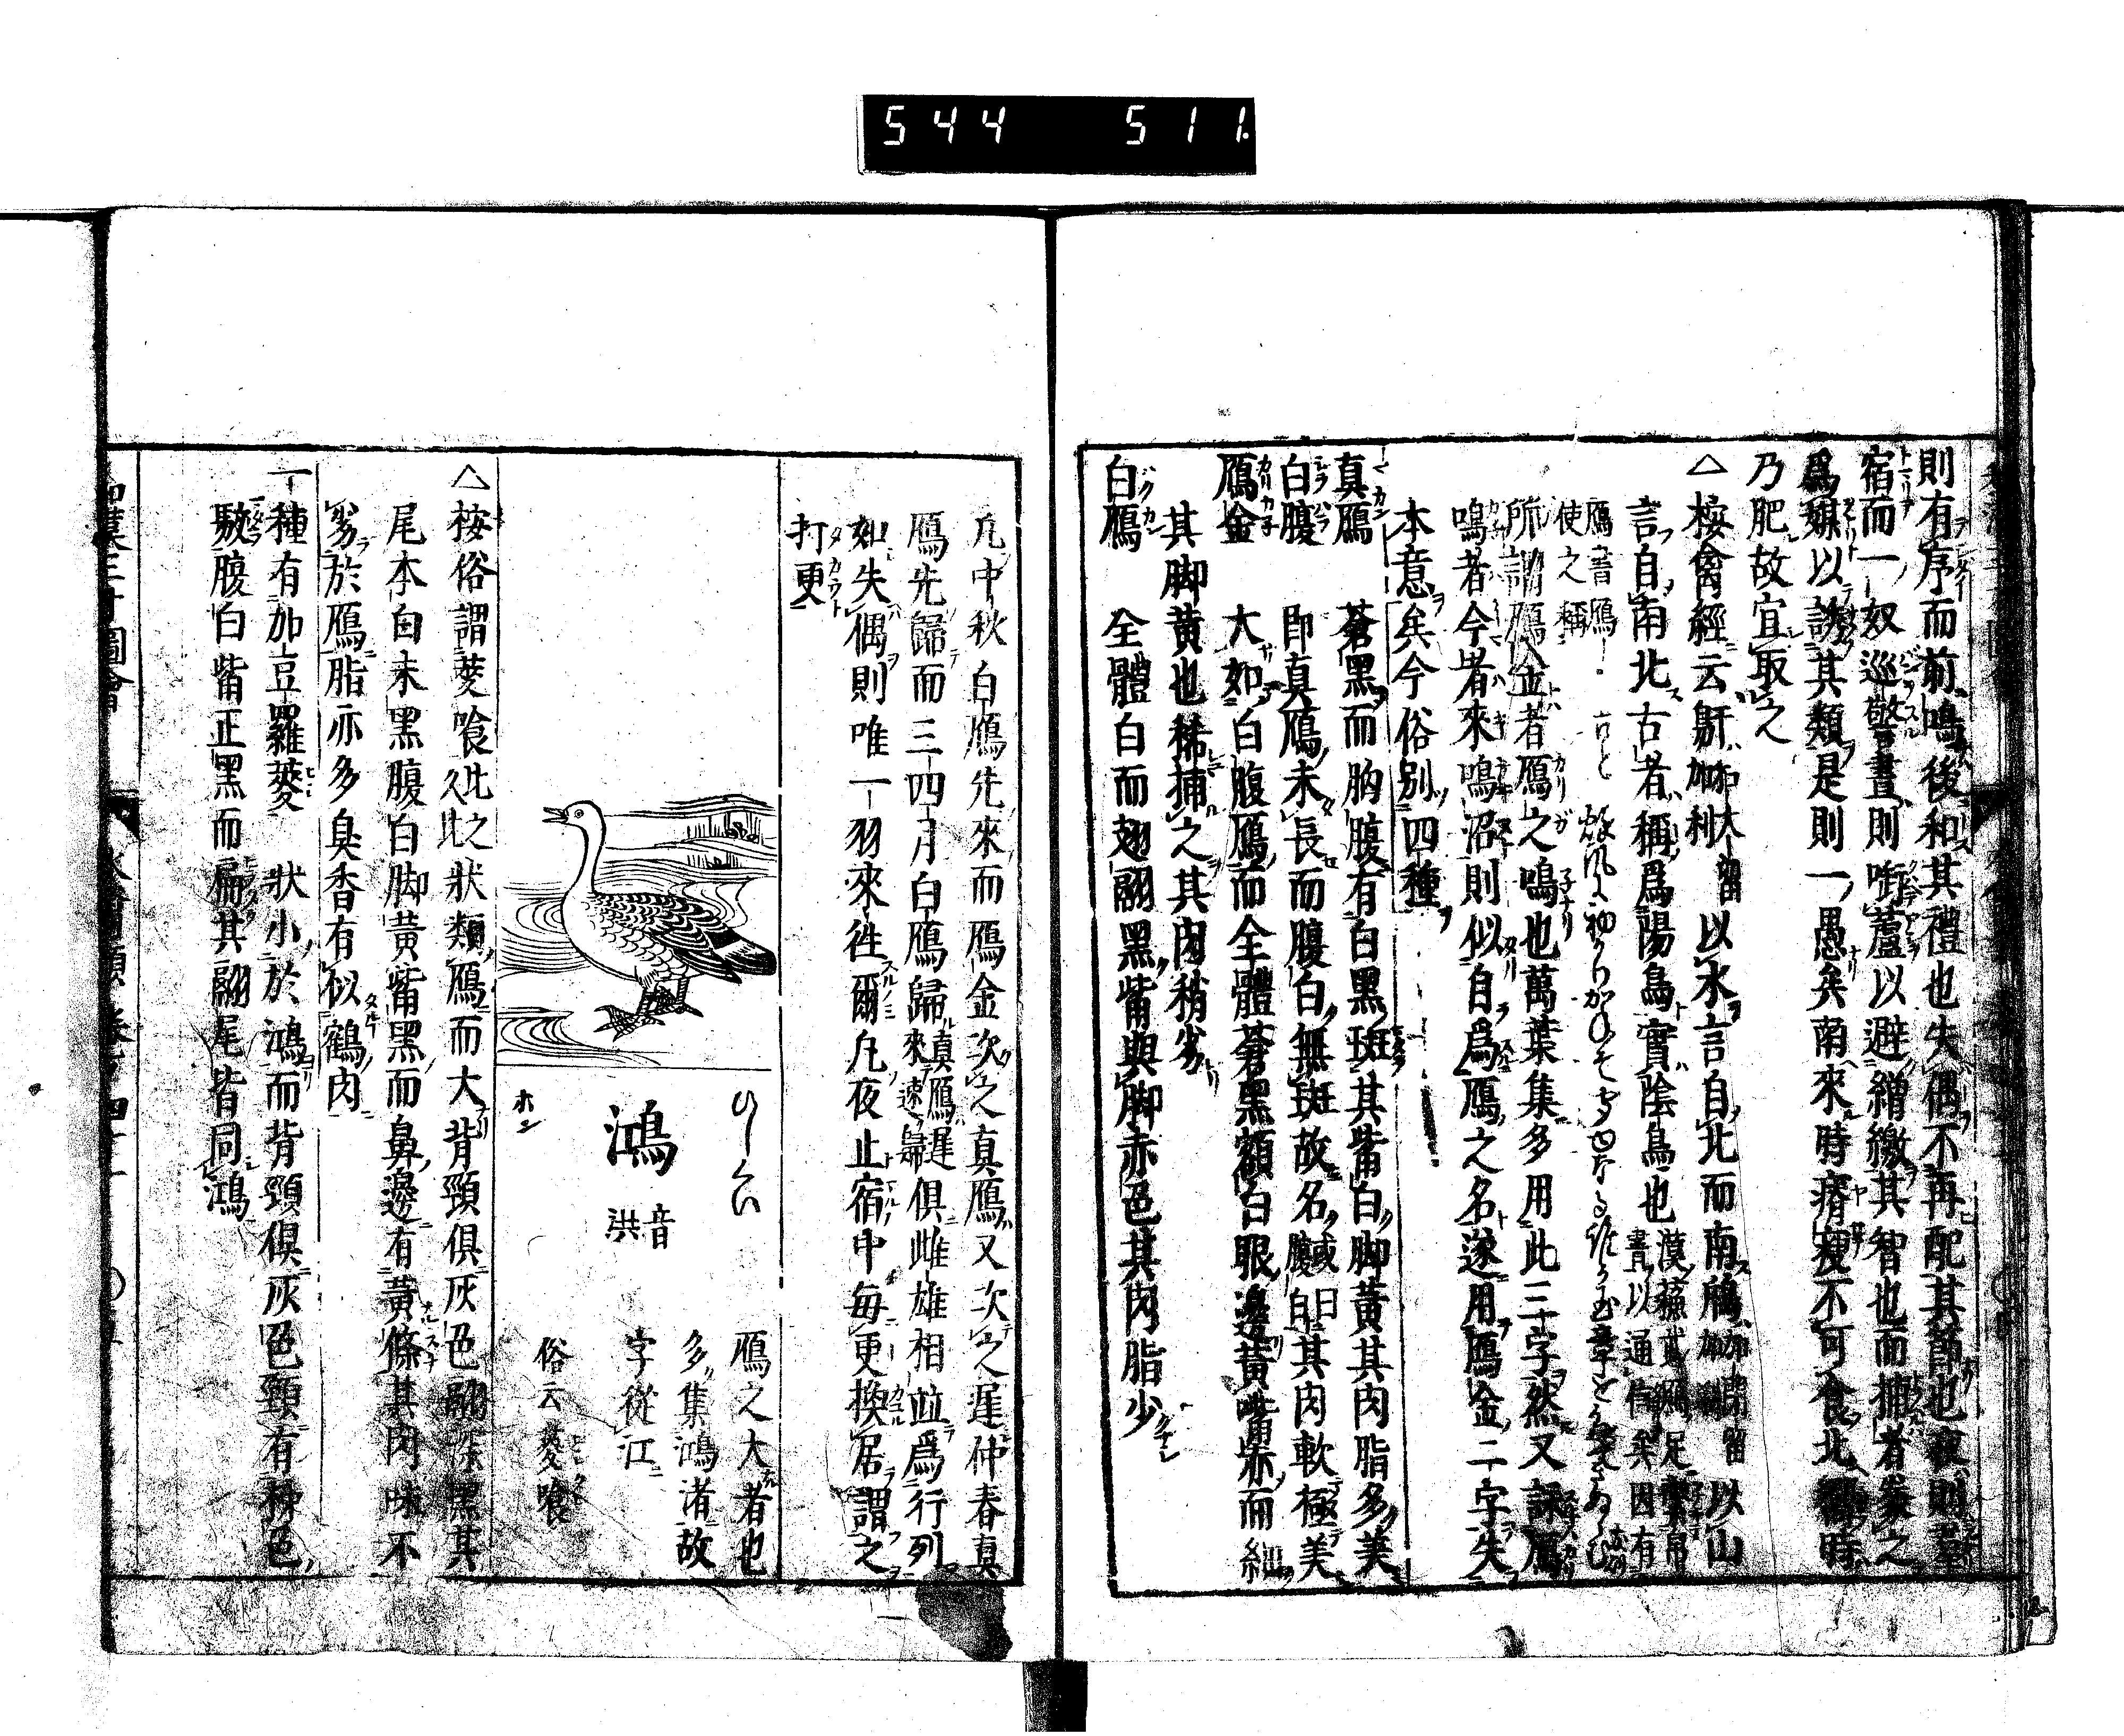 544 511
則有序而前鳴後和其禮也失偶不再配其節也夜則羣
宿而一奴巡警晝則啣蘆以避繒繳其智也而捕者豢之
爲媒以誘其類是則一愚矣南來時瘠瘦不可食北嚮時
乃肥故宜取之
△按禽經云鳱以水言自北而南鳫以山
言自南北古者稱爲陽鳥實陰鳥也
漢蘓武鴈足繫帛
書以通信矣因有
鴈書鴈
使之稱
所謂鴈金者鴈之鳴也萬葉集多用此三字然又訓鴈
鳴者今者來鳴沼則似自爲鴈之名遂用鴈金二字失
本意矣今俗別四種
真鴈 蒼黑而胸腹有白黑斑其觜白脚黃其肉脂多美
白腹 即真鴈未長而腹白無斑故名或曰腹白其肉軟極美
鴈金 大如白腹鴈而全體蒼黑額白眼邊黃嘴赤而細
其脚黃也稀捕之其肉稍劣
白鴈 全體白而翅翮黑觜與脚赤色其肉脂少
凡中秋白鴈先來而鴈金次之真鴈又次之遲仲春真
鴈先歸而三四月白鴈歸真鴈遲來速歸俱雌雄相並爲行列
如失偶則唯一羽來徃爾凡夜止宿中每更換居謂之
打更
ひしくい
鴻
音
洪
ホン
鴈之大者也
多集鴻渚故
字從江
俗云菱喰
△按俗謂菱喰此之狀類鴈而大背頸俱灰色翮深黑其
尾本白末黑腹白脚黃觜黑而鼻邊有黃條其肉味不
劣於鴈脂亦多臭香有似鶴肉
一種有加豆羅菱 狀小於鴻而背頸俱灰色頸有柹色
駮腹白觜正黑而扁其翮尾皆同鴻